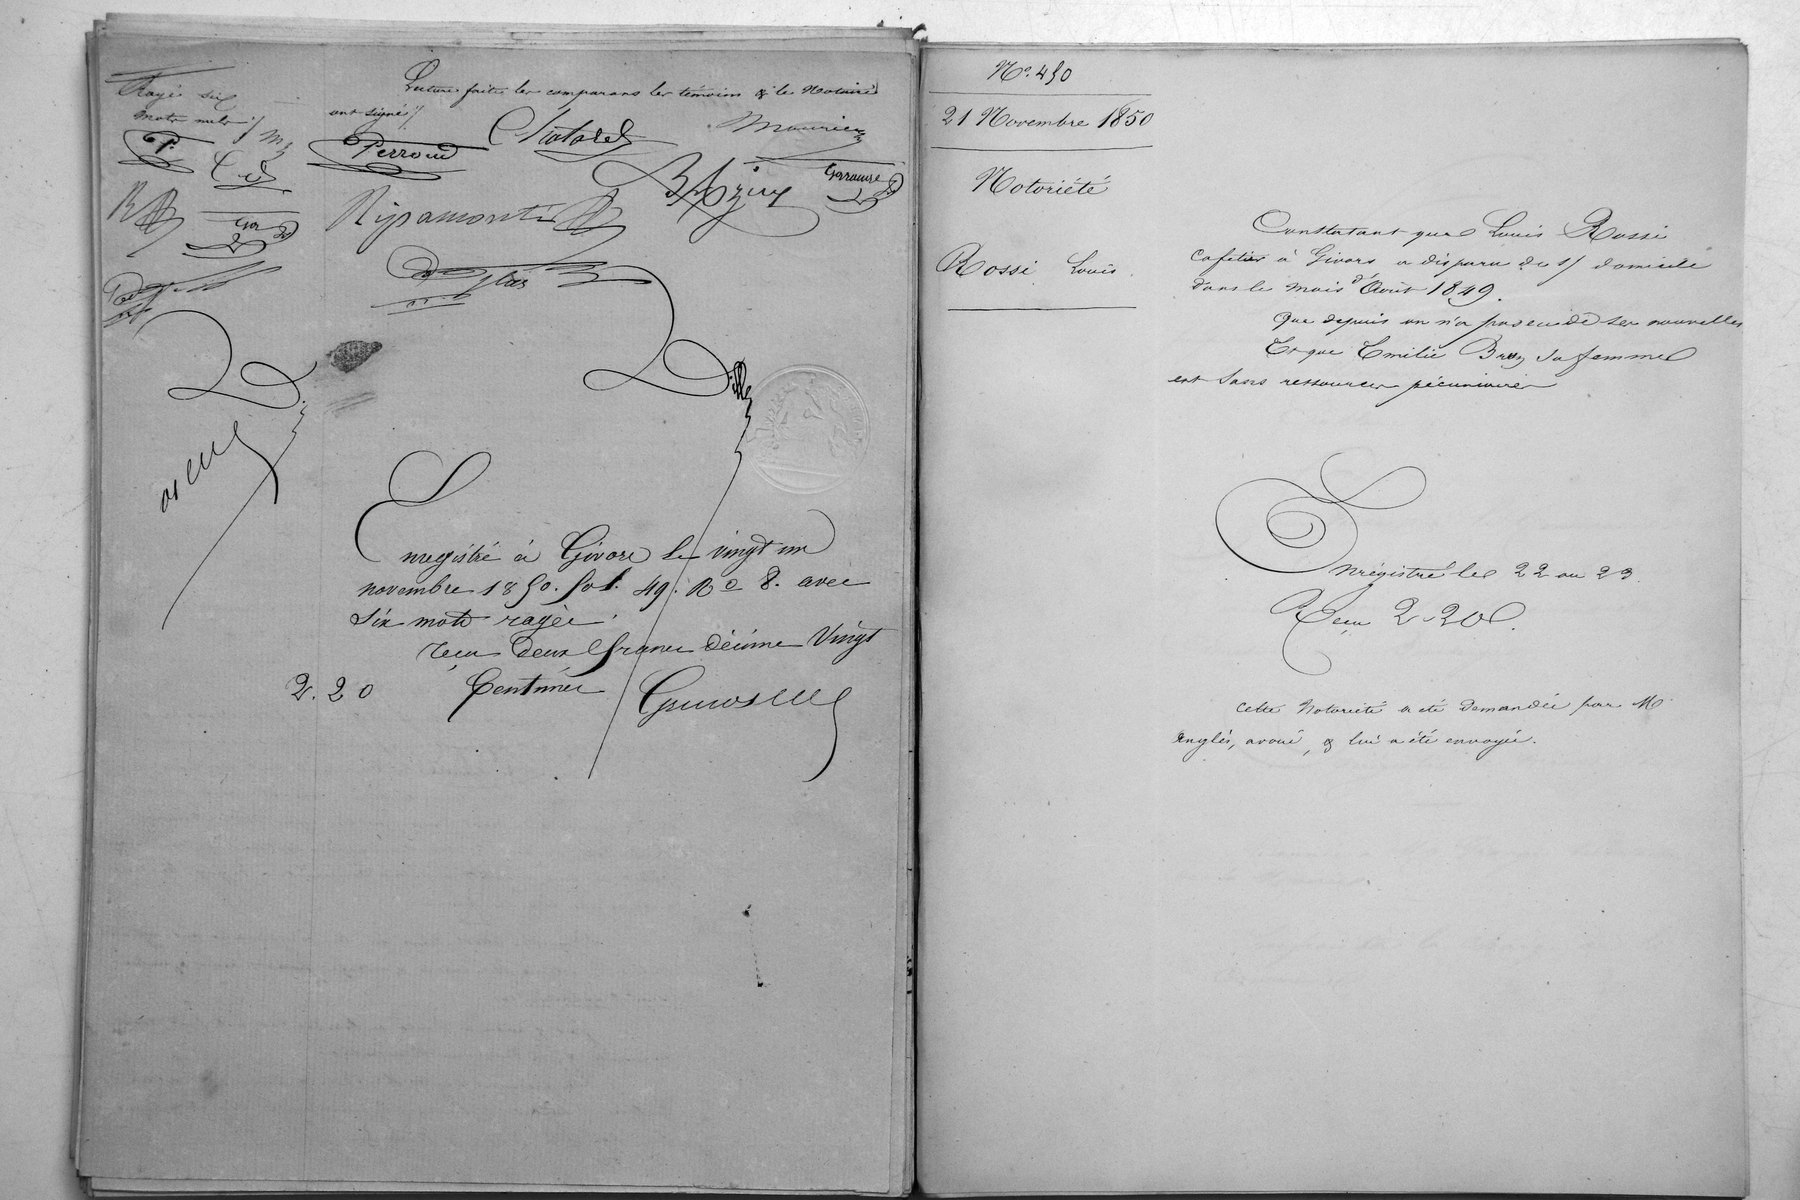 Rayé six
mots nuls
Lecture faite les comparans les témoins & le Notaire
ont signé
Perroud
Mourier
Ripamonti
Enregistré à Givors le vingt un
novembre 1850. fol. 49. Ro C 8. avec
six mots rayés.
reçu deux francs décime Vingt
2.20 Centimes
No. 450
21 Novembre 1850
Notoriété
Rossi Louis
Constatant que Louis Rossi
Cafetier à Givors a disparu de s/ domicile
dans le mois d'Août 1849.
Que depuis on n'a pas eu de ses nouvelles
Et que Emélie sa femme
est sans ressources pécuniaires
Enrégistré le 22 ou 23.
Reçu 2.20
Cette Notoriété a été demandée par M.
Anglès, avoué, & lui a été envoyée.